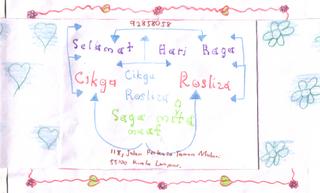 92858058
Selamat Hari Raya
Cikgu Cikgu Rosliza
Rosliza
Saya minta
maaf
118, Jalan
55100 Kuala Lumpur.